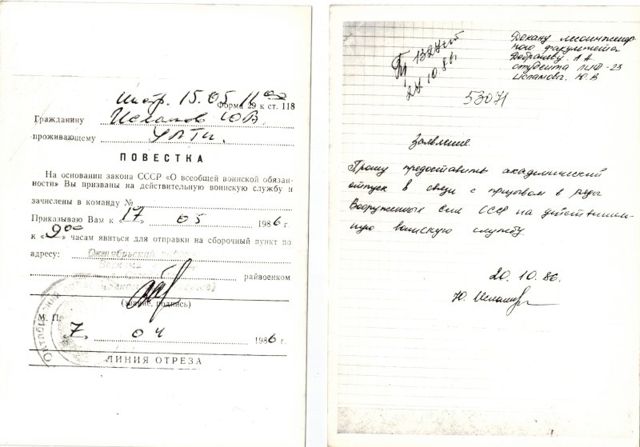 Инстр. 15.05 11 00
Форма 39 к ст. 118
Гражданину Исламов Ю.В.
проживающему УЛТИ.
ПОВЕСТКА
На основании закона СССР «О всеобщей воинской обязан-
ности» Вы призваны на действительную воинскую службу и
зачислены в команду №
Приказываю Вам к 17. 05 1986 г.
к «9 00» часам явиться для отправки на сборочный пункт по
адресу: Октябрьский
райвоенком
подпись)
М. П.
7. 04 1986 г.
ЛИНИЯ ОТРЕЗА
24.10.86
Декану лесоинженер-
ного факультета
Добрачеву А.А
студента
Исламова. Ю.В
53071
Заявление
Прошу предоставить академический
отпуск в связи с призывом в ряды
Вооруженных Сил СССР на действитель-
ную воинскую службу
20.10.86.
Ю. Исламов